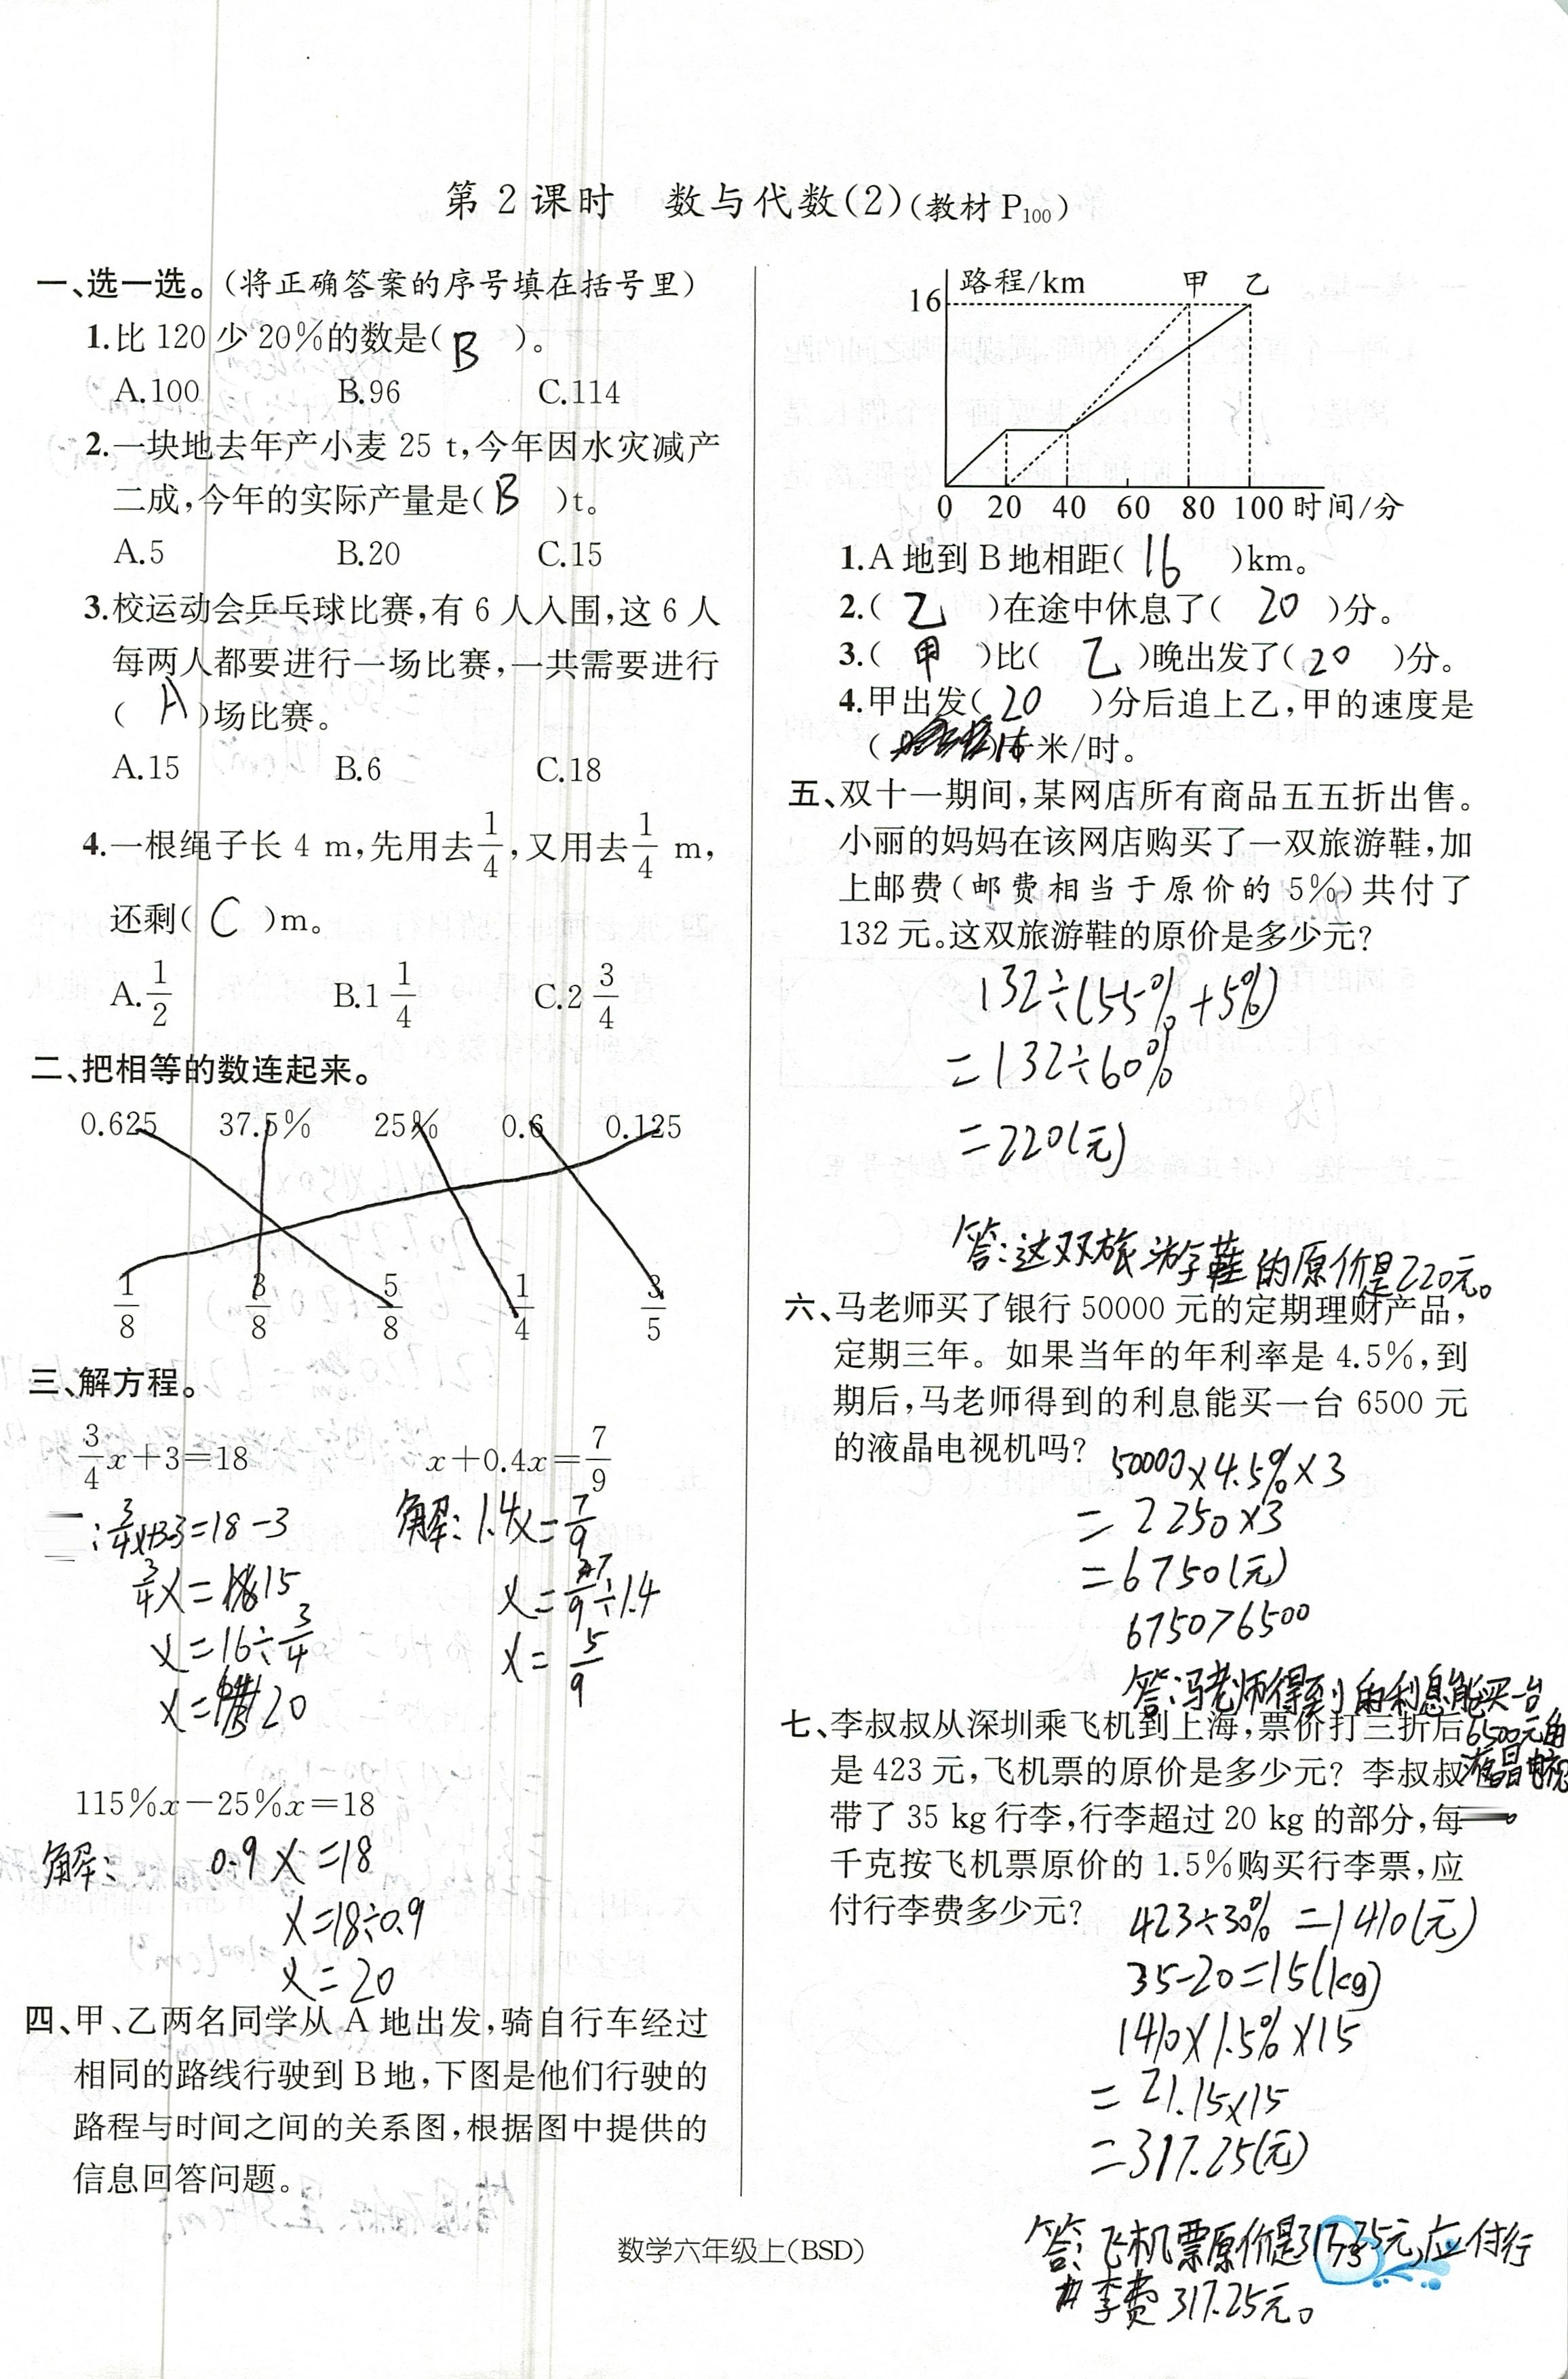 第2课时 数与代数(2)(教材P100)
一、选一选。(将正确答案的序号填在括号里)
1.比120少20%的数是( B )。
A.100 B.96 C.114
2.一块地去年产小麦25 t,今年因水灾减产
二成,今年的实际产量是( B )t。
A.5 B.20 C.15
3.校运动会乒乓球比赛,有6人入围,这6人
每两人都要进行一场比赛,一共需要进行
( A )场比赛。
A.15 B.6 C.18
4.一根绳子长4 m,先用去1/4,又用去1/4 m,
还剩( C )m。
A.1/2 B.1 1/4 C.2 3/4
二、把相等的数连起来。
0.625 37.5% 25% 0.6 0.125
1/8 3/8 5/8 1/4 3/5
三、解方程。
3/4x+3=18 x+0.4x=7/9
:3/4x+3-3=18-3 解:1.4x=7/9
3/4x=15 x=7/9÷1.4
x=16÷3/4 x=5/9
x=20
115%x-25%x=18
解: 0.9x=18
x=18÷0.9
x=20
四、甲、乙两名同学从A地出发,骑自行车经过
相同的路线行驶到B地,下图是他们行驶的
路程与时间之间的关系图,根据图中提供的
信息回答问题。
路程/km 甲 乙
16
0 20 40 60 80 100 时间/分
1.A地到B地相距( 16 )km。
2.( 乙 )在途中休息了( 20 )分。
3.( 甲 )比( 乙 )晚出发了( 20 )分。
4.甲出发( 20 )分后追上乙,甲的速度是
( )千米/时。
五、双十一期间,某网店所有商品五五折出售。
小丽的妈妈在该网店购买了一双旅游鞋,加
上邮费(邮费相当于原价的5%)共付了
132元。这双旅游鞋的原价是多少元?
132÷(55%+5%)
=132÷60%
=220(元)
答:这双旅游鞋的原价是220元。
六、马老师买了银行50000元的定期理财产品,
定期三年。如果当年的年利率是4.5%,到
期后,马老师得到的利息能买一台6500元
的液晶电视机吗?
50000×4.5%×3
=2250×3
=6750(元)
6750>6500
答:冯老师得到的利息能买一台
6500元的
液晶电视
。
七、李叔叔从深圳乘飞机到上海,票价打三折后
是423元,飞机票的原价是多少元?李叔叔
带了35 kg行李,行李超过20 kg的部分,每
千克按飞机票原价的1.5%购买行李票,应
付行李费多少元?
423÷30%=1410(元)
35-20=15(kg)
1410×1.5%×15
=21.15×15
=317.25(元)
答:飞机票原价是317.25元,应付行
李费317.25元。
数学六年级上(BSD)
73